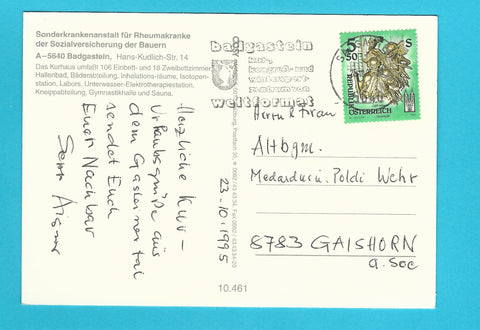 Sonderkrankenanstalt für Rheumakranke
der Sozialversicherung der Bauern
A–5640 Badgastein, Hans-Kudlich-Str. 14
Das Kurhaus umfaßt 106 Einbett- und 18 Zweibettzimmer
Hallenbad, Bäderabteilung, Inhalations-räume, Isotopen-
station, Labors, Unterwasser-Elektrotherapiestation,
Kneippabteilung, Gymnastikhalle und Sauna.
badgastein
kur-,
kongreß- und
wintersport-
zentrum von
weltformat
5
S
REPUBLIK
ÖSTERREICH
Herzliche Kur-
Urlaubsgrüße aus
dem Gasteinertal
sendet Euch
Euer Nachbar
23-10-1995
Herrn & Frau
Altbgm.
Medardus u. Poldi Wehr
8783 GAISHORN
a. See
10.461